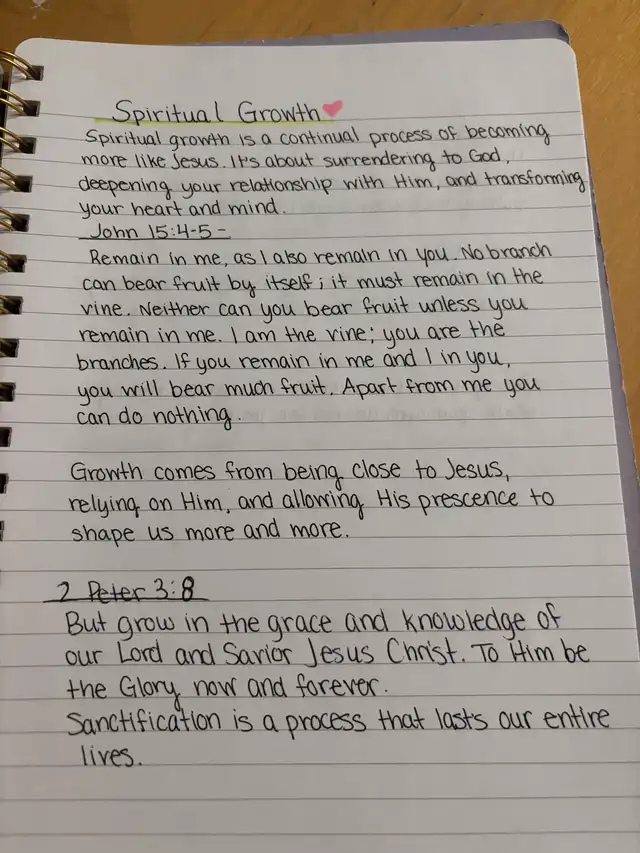 Spiritual Growth
Spiritual growth is a continual process of becoming
more like Jesus. It's about surrendering to God,
deepening your relationship with Him, and transforming
your heart and mind.
John 15:4-5-
Remain in me, as I also remain in you. No branch
can bear fruit by itself; it must remain in the
vine. Neither can you bear fruit unless you
remain in me. I am the vine; you are the
branches. If you remain in me and I in you,
you will bear much fruit. Apart from me you
can do nothing.
Growth comes from being close to Jesus,
relying on Him, and allowing His prescence to
shape us more and more.
2 Peter 3:8
But grow in the grace and knowledge of
our Lord and Savior Jesus Christ. To Him be
the Glory now and forever.
Sanctification is a process that lasts our entire
lives.